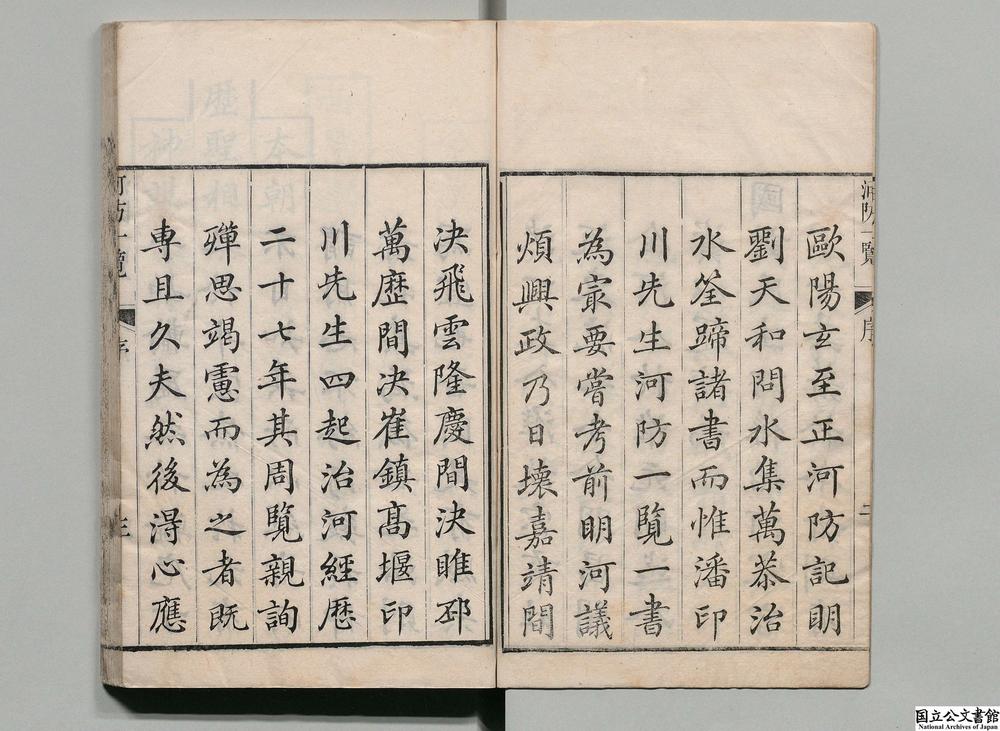 歐陽玄至正河防記明
劉天和問水集萬恭治
水筌蹄諸書而惟潘印
川先生河防一覽一書
為㝡要嘗考前明河議
煩興政乃日壊嘉靖間
決飛雲隆慶間決睢邳
萬歷間决崔鎮髙堰印
川先生四起治河經歷
二十七年其周覽親詢
殫思竭慮而為之者既
專且久夫然後淂心應
河防一覽
序
二
河防一覽
序
国立公文書館
National Archives of Japan